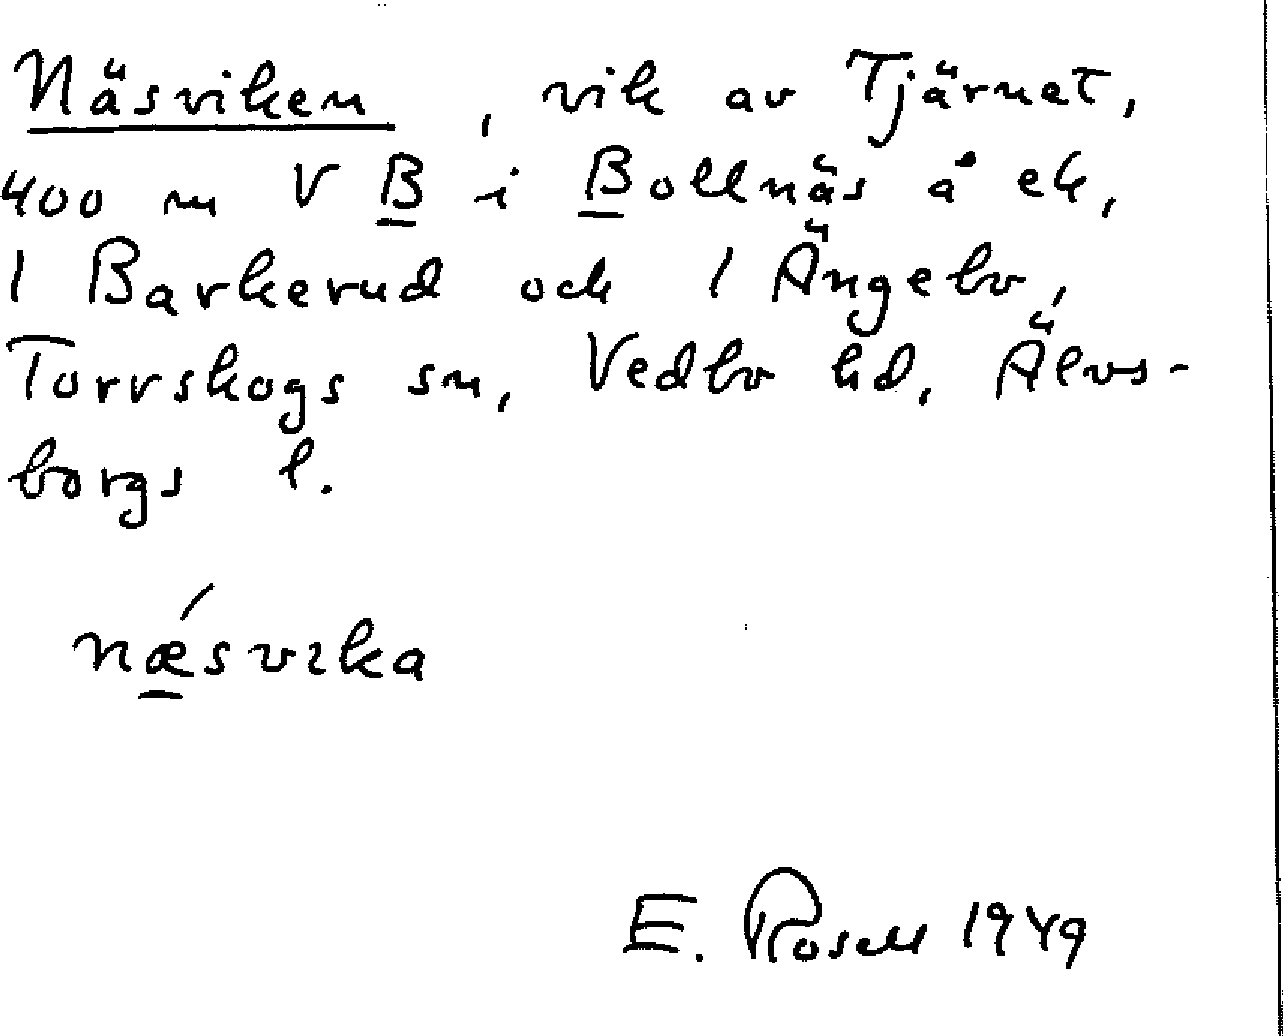 Näsviken, vik av Tjärnet,
400 m V B i Bollnäs å ek,
1 Barkerud och 1 Ängebo,
Torrskogs sn, Vedbo hd, Älvs-
borgs l.
nǽsvıka
E. Rosell 1949